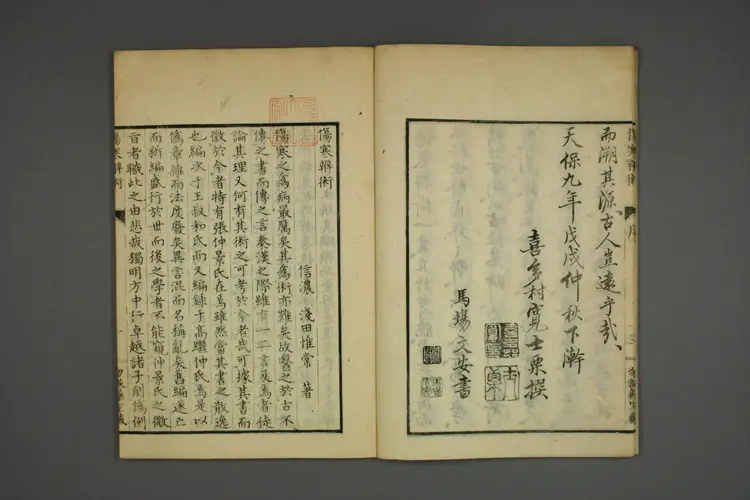 而溯其源古人豈遠乎哉
天保九年戊戌仲秋下澣
喜多村寬士栗撰
馬場文安書
傷寒辨術
信濃 淺田惟常 著
傷寒之為病最厲矣其為術亦難矣故醫之於古不
傳之書而傳之言秦漢之際雖有一二言及焉者徒
論其理又何有其術之可考於今者哉可據其書而
徵於今者特有張仲景氏在焉雖然當其書之散逸
也編次于王叔和氏而又編錄于高繼仲氏焉是以
篇章雜而法度廢矣異言混而名稱亂矣舊編遂亡
而新編盛行於世而後之學者不能窺仲景氏之微
旨者職此之由悲哉獨明方中行卓越諸子削偽例
傷寒辨術